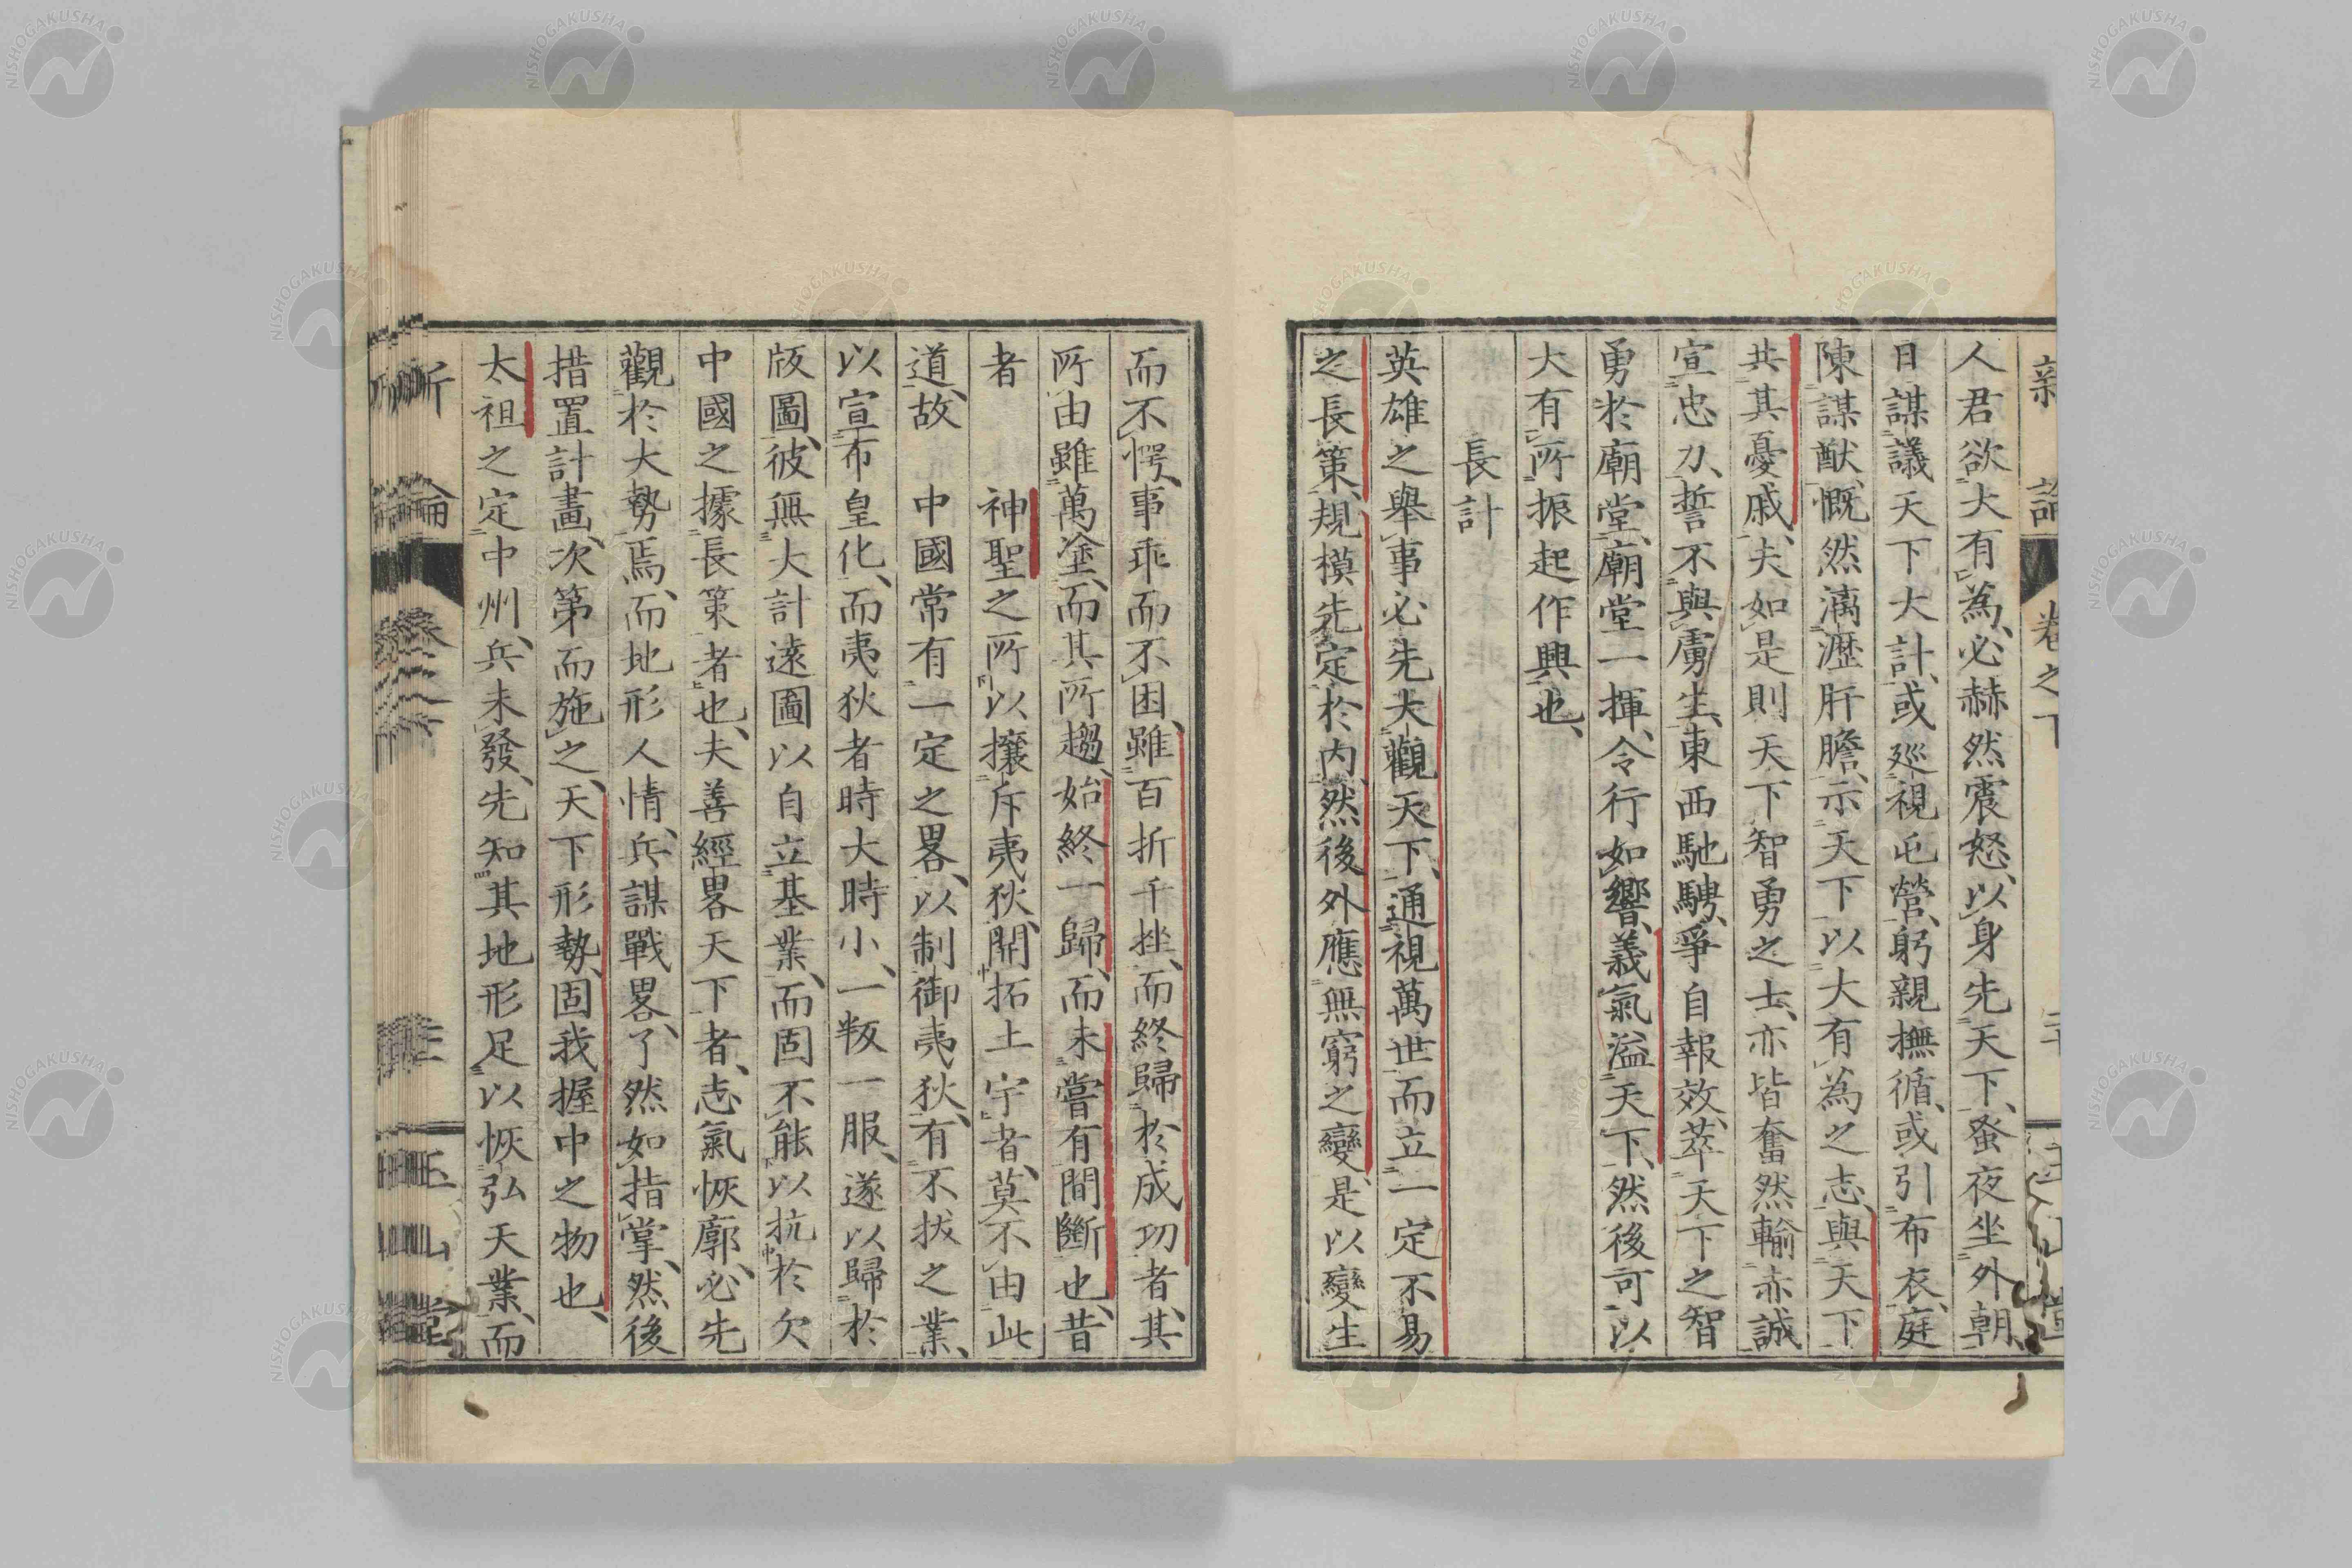 新論 卷之下
人君欲大有為、必赫然震怒、以身先天下、蚤夜坐外朝、
日謀議天下大計、或廵視屯營、躬親撫循、或引布衣、庭
陳謀猷、慨然瀝肝膽、示天下以大有為之志、與天下
共其憂戚、夫如是則天下智勇之士、亦皆奮然輸赤誠
宣忠力、誓不與虜生、東西馳騁、爭自報效、萃天下之智
勇於廟堂、廟堂一揮、令行如響、義氣溢天下、然後可以
大有所振起作興也、
長計
英雄之舉事必先大觀天下、通視萬世而立一定不易
之長策、規模先定於内、然後外應無窮之變、是以變生
而不愕、事乖而不困、雖百折千挫、而終歸於成功者、其
所由雖萬塗、而其所趨、始終一歸、而未嘗有間斷也、昔
者 神聖之所以攘斥夷狄、開拓土宇者、莫不由此
道、故 中國常有一定之畧、以制御夷狄、有不拔之業、
以宣布皇化、而夷狄者時大時小、一叛一服、遂以歸於
版圖、彼無大計遠圖以自立基業、而固不能以抗於欠
中國之據長策者也、夫善經畧天下者、志氣恢廓、必先
觀於大勢焉、而地形人情、兵謀戰畧、了然如指掌、然後
措置計畫、次第而施之、天下形勢、固我握中之物也、
太祖之定中州、兵未發、先知其地形足以恢弘天業、而
新論
玉山堂